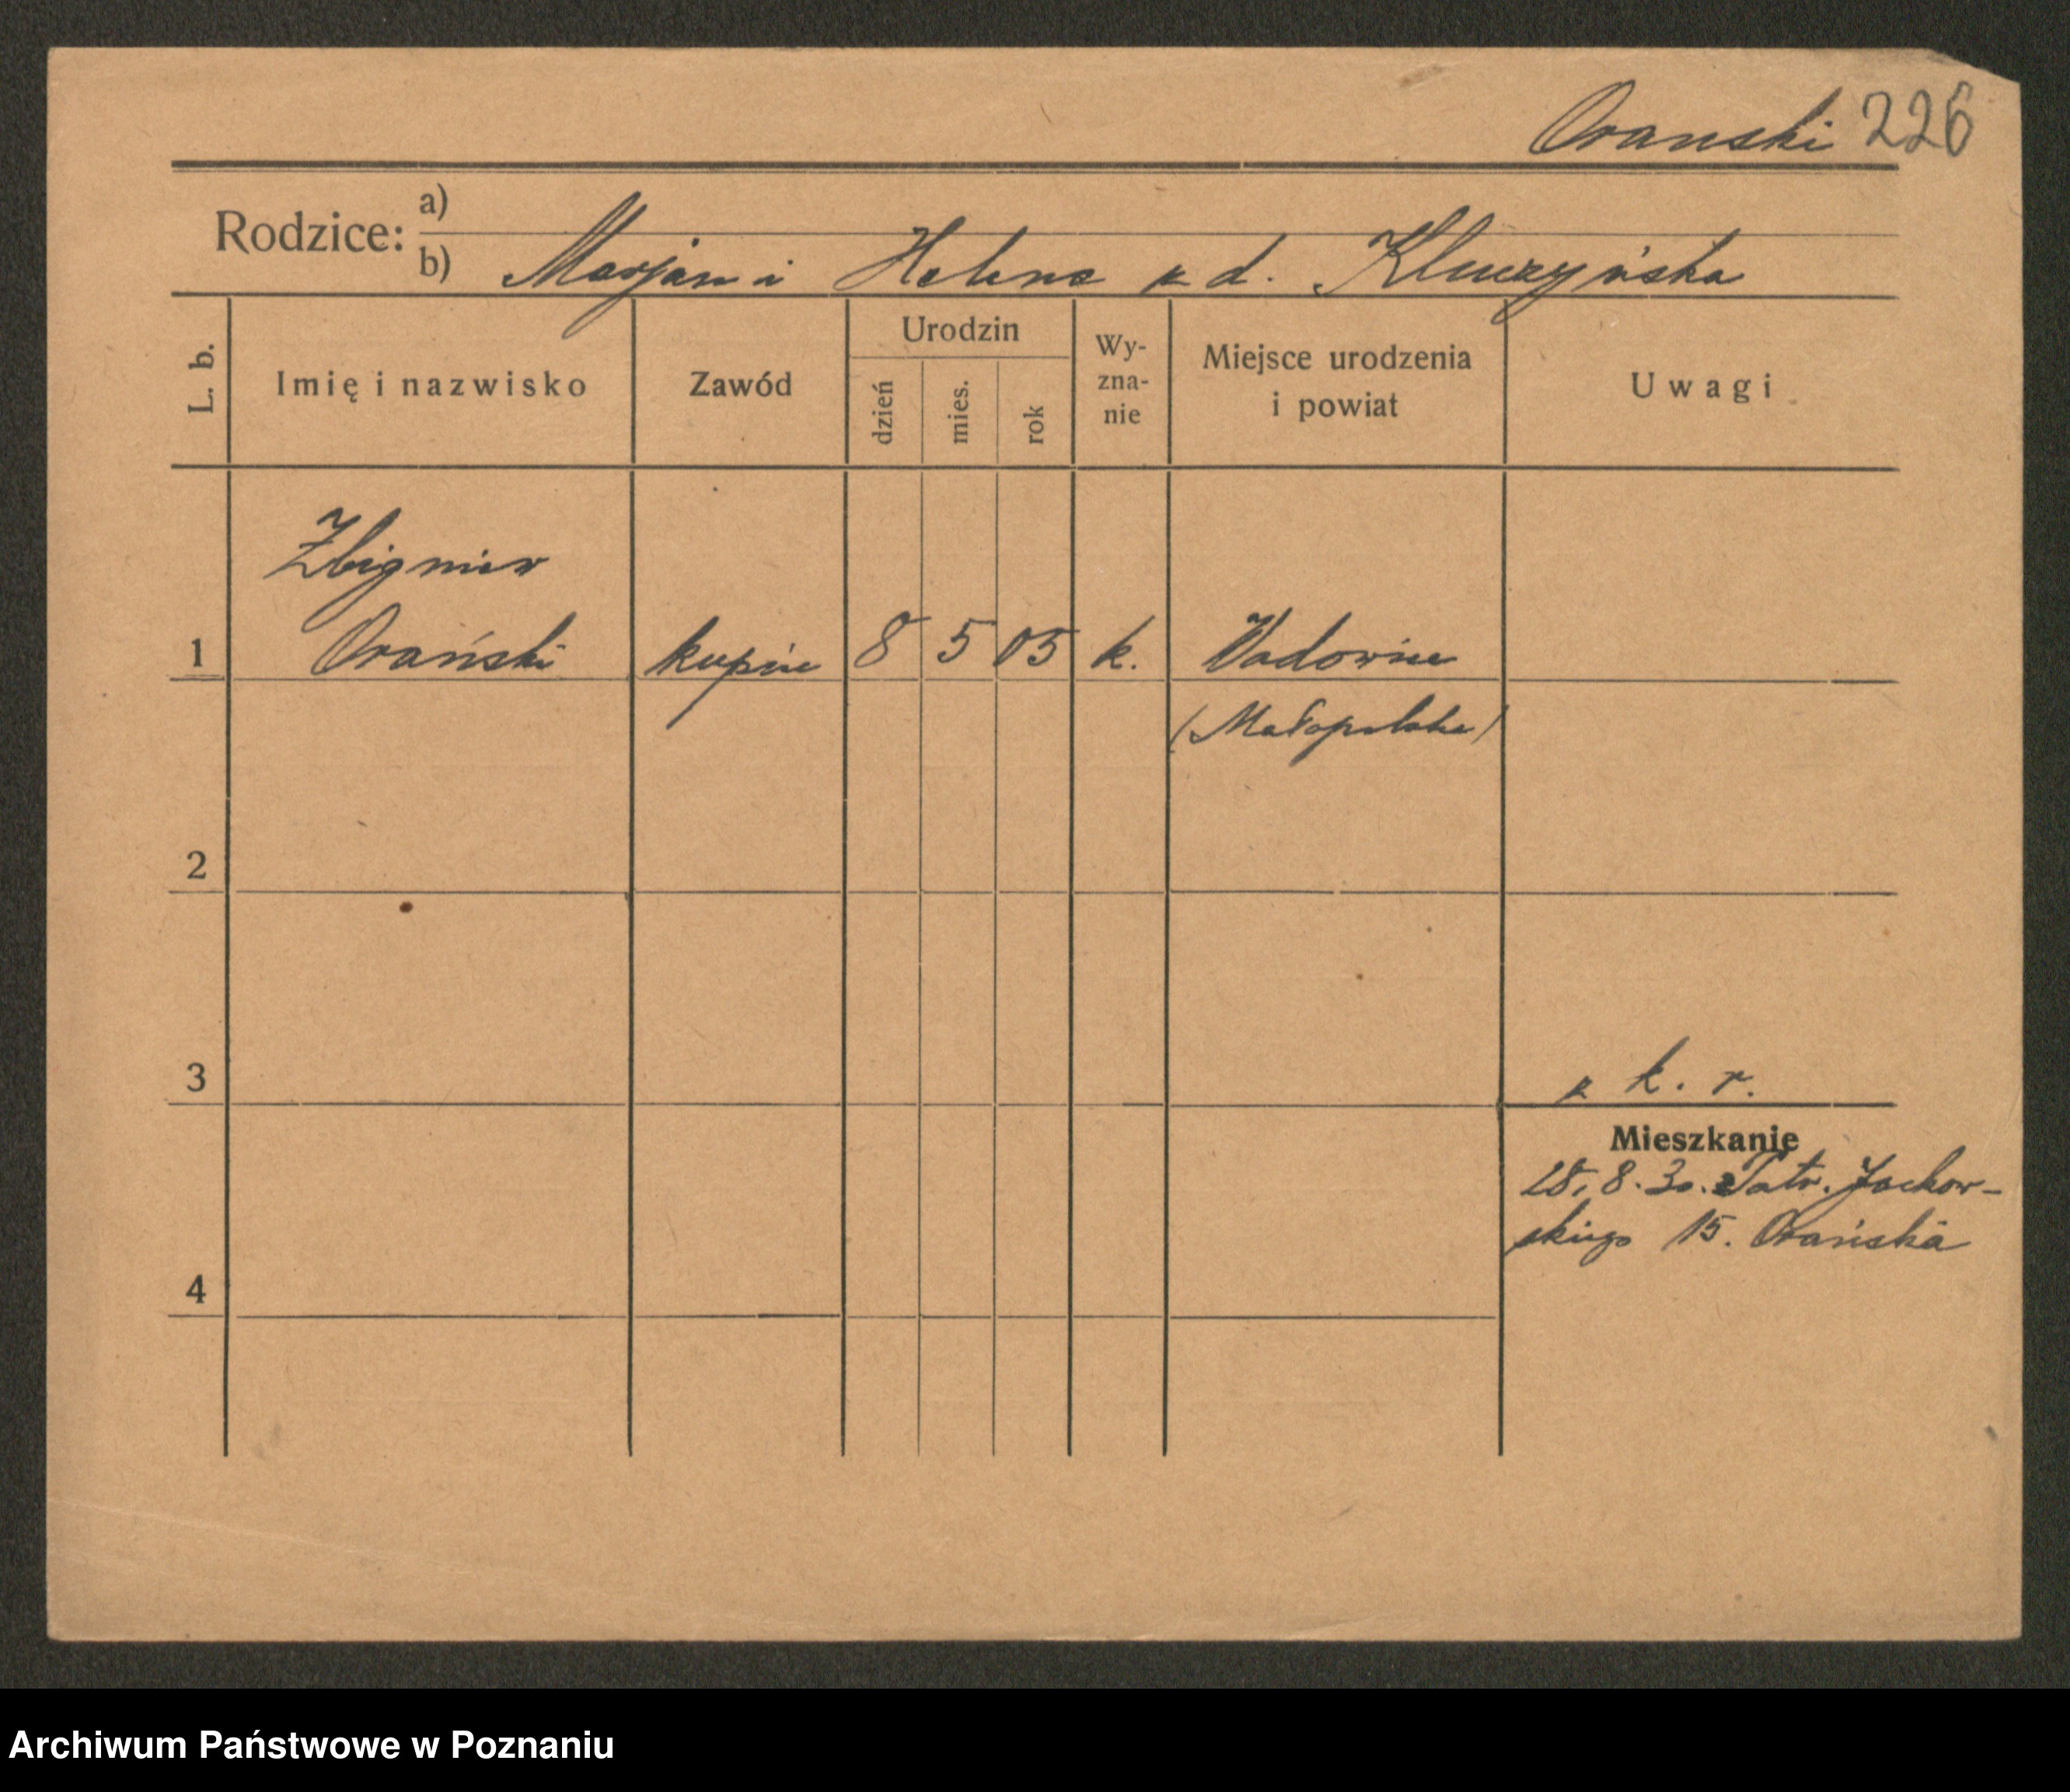 Orański 226
Rodzice: a)
b) Marjan i Helena z d. Kluczyńska
L. b. Imię i nazwisko Zawód Urodzin dzień mies. rok Wy-zna-nie Miejsce urodzenia i powiat Uwagi
Zbigniew
1 Orański kupiec 8 5 05 k. Wadowice
(Małopolska)
2
3 z k. r.
Mieszkanie
28.8.30. Patr. Jackow-
skiego 15. Orańska
4
Archiwum Państwowe w Poznaniu